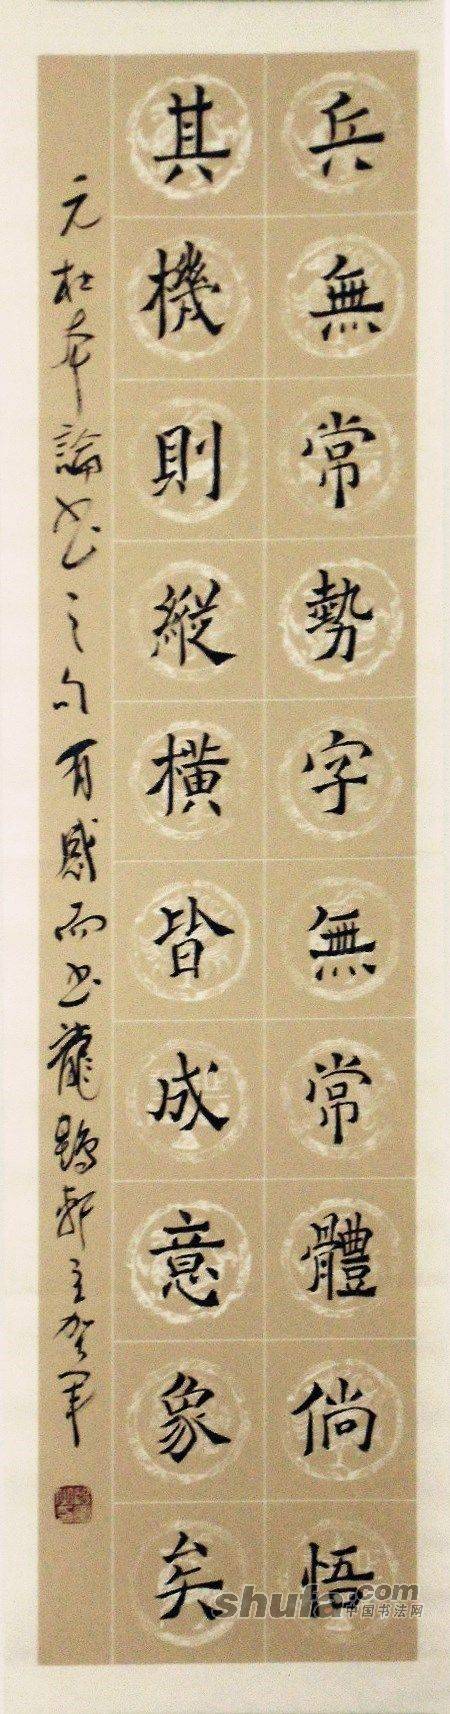 兵無常勢字無常體倘悟
其機則縱橫皆成意象矣
元杜本論書之句有感而書龍鵠軒主賀軍
shufa.com
中国书法网